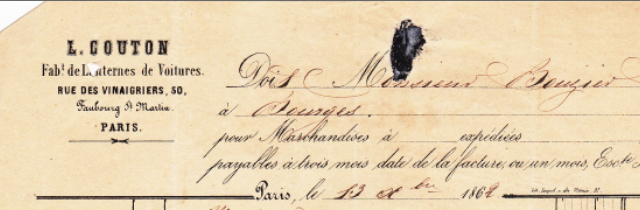 L. COUTON
Fabt. de Lanternes de Voitures.
RUE DES VINAIGRIERS, 50,
Faubourg St Martin.
PARIS.
Doit Monsieur Bouzier
à Bourges.
pour Marchandises à expédiées
payables à trois mois date de la facture, ou un mois, Escte
Paris, le 13 Xbre 1862